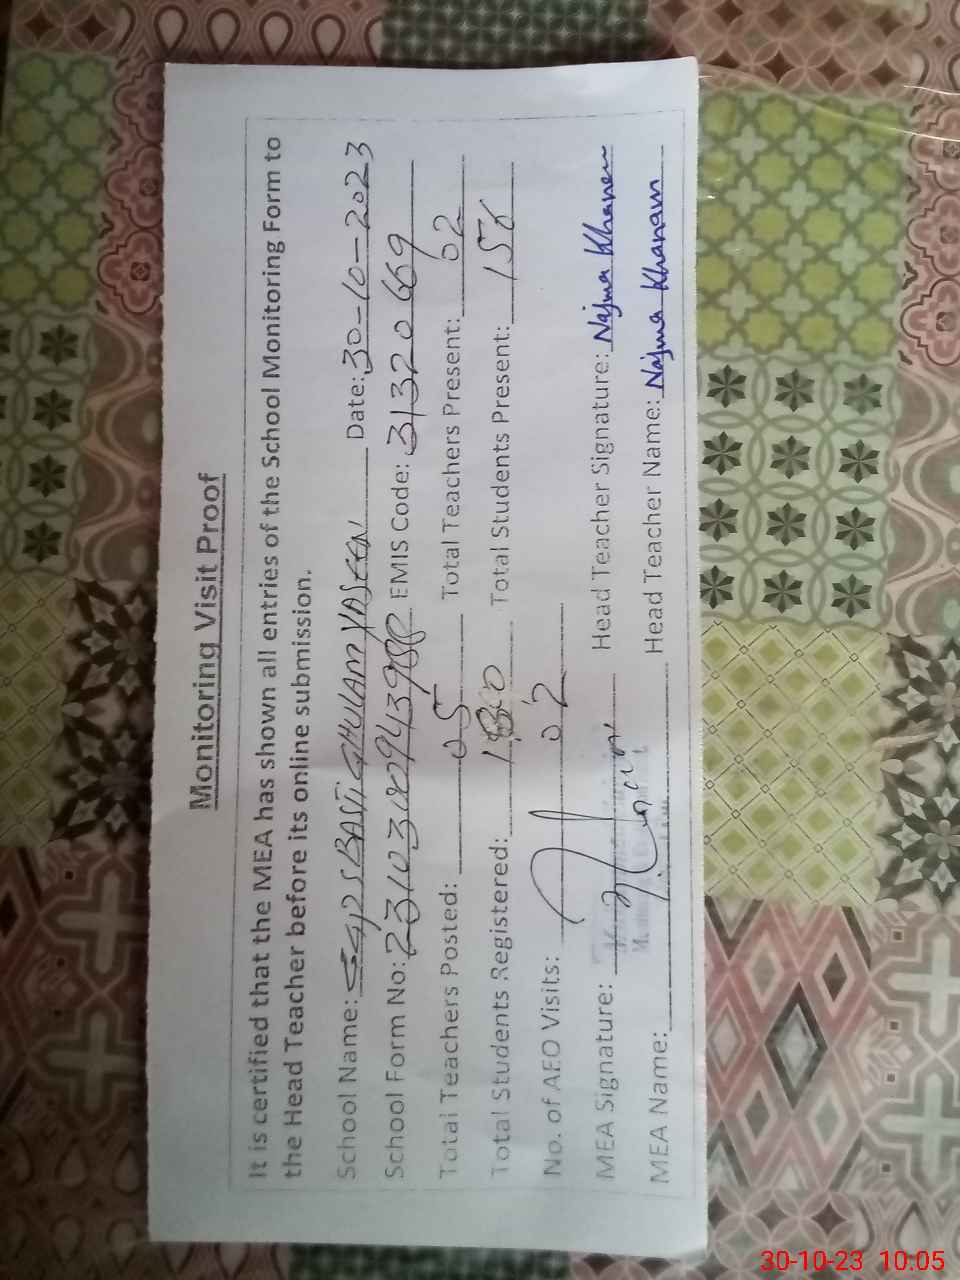 Monitoring Visit Proof
It is certified that the MEA has shown all entries of the School Monitoring Form to
the Head Teacher before its online submission.
School Name: GGPS BASTI GHULAM YASEEN Date: 30-10-2023
School Form No: EMIS Code: 31320669
Total Teachers Posted: 05 Total Teachers Present: 02
Total Students Registered: Total Students Present:
No. of AEO Visits: 02
MEA Signature: Head Teacher Signature: Najma Khanam
MEA Name: Head Teacher Name: Najma Khanam
30-10-23 10:05